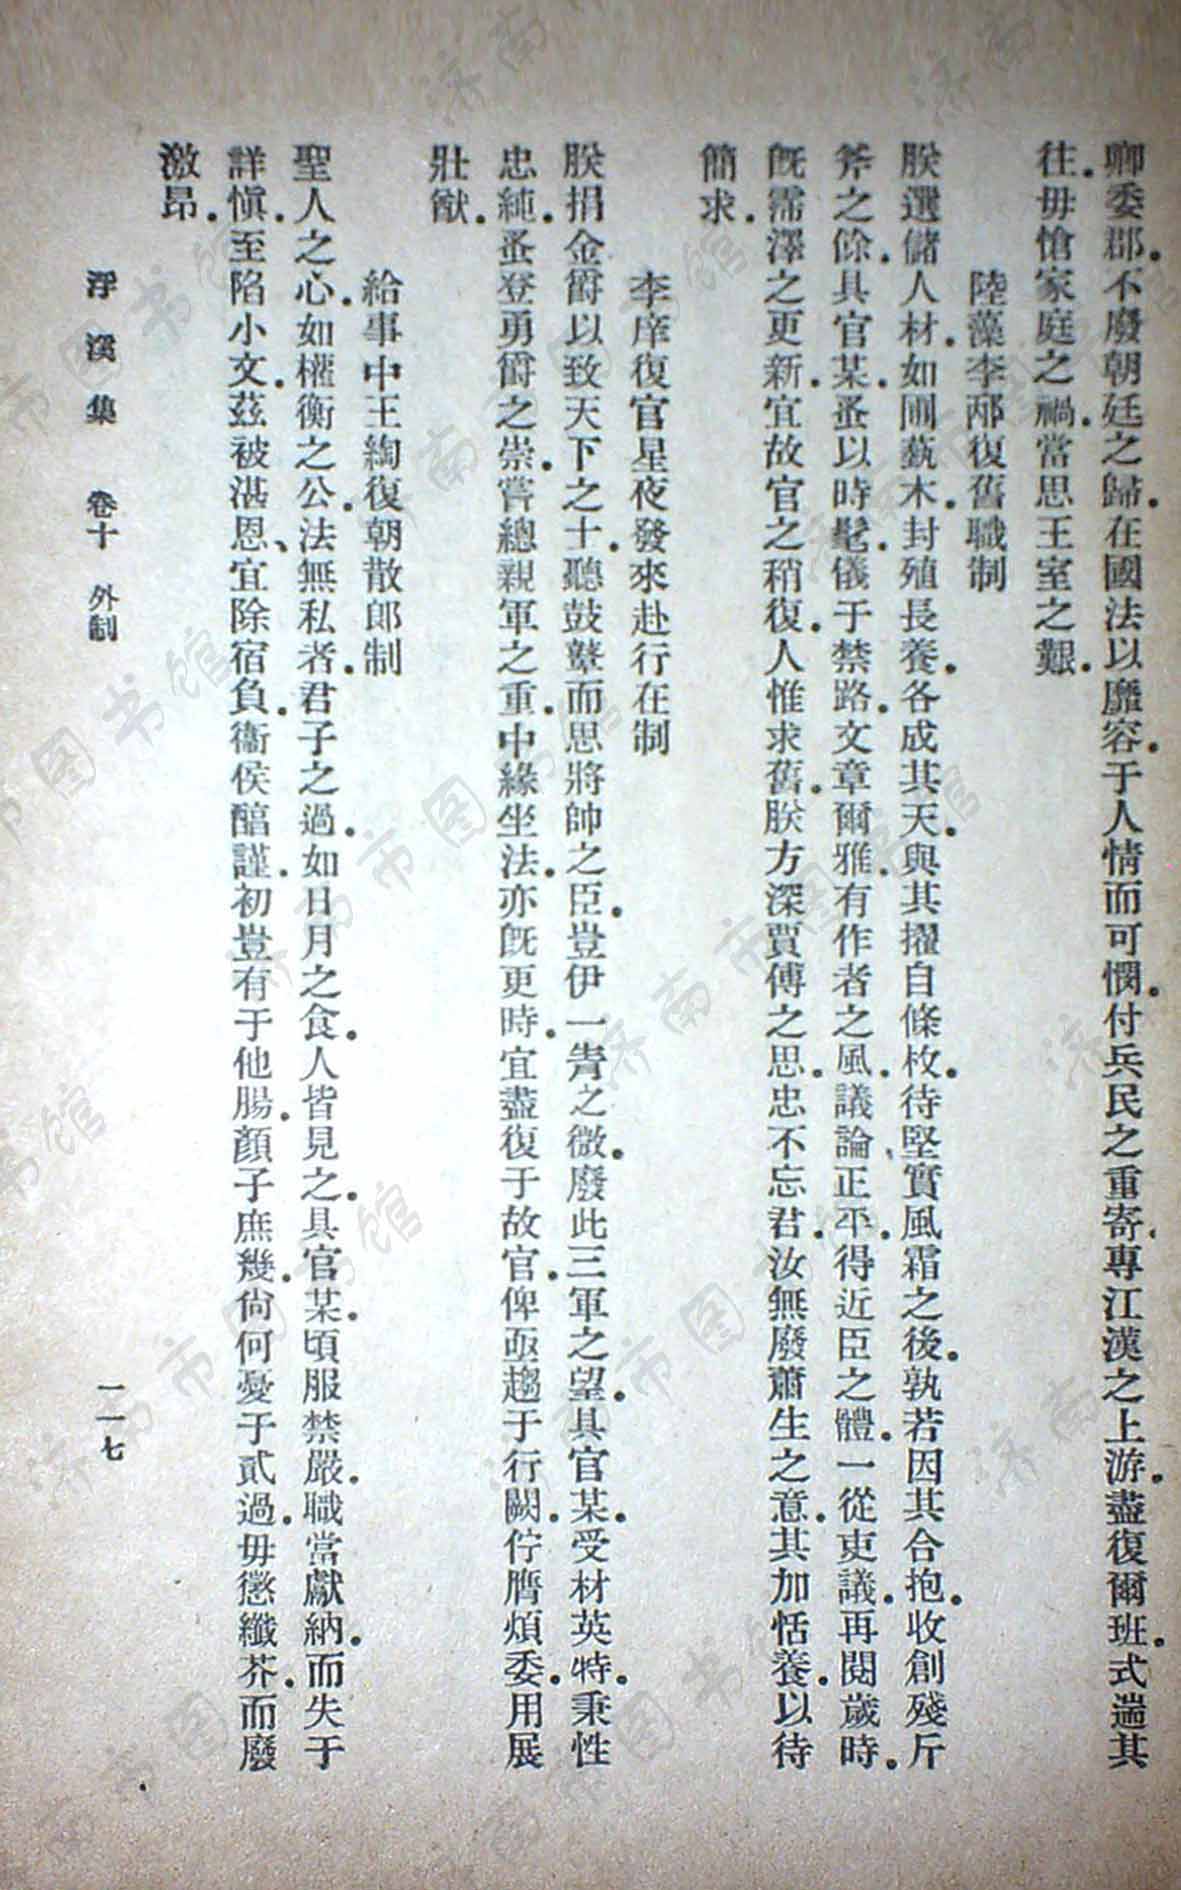 卿委郡。不廢朝廷之歸。在國法以靡容。于人情而可憫。付兵民之重寄。專江漢之上游。盡復爾班。式遄其
往。毋愴家庭之禍。當思王室之艱。
陸藻李邴復舊職制
朕選儲人材。如圃藝木。封殖長養。各成其天。與其擢自條枚。待堅實風霜之後。孰若因其合抱。收創殘斤
斧之餘。具官某。蚤以時髦。儀于禁路。文章爾雅。有作者之風。議論正平。得近臣之體。一從吏議。再閱歲時。
旣霈澤之更新。宜故官之稍復。人惟求舊。朕方深賈傅之思。忠不忘君。汝無廢蕭生之意。其加恬養。以待
簡求。
李庠復官星夜發來赴行在制
朕捐金爵以致天下之士。聽鼓鼙而思將帥之臣。豈伊一眚之微。廢此三軍之望。具官某。受材英特。秉性
忠純。蚤登勇爵之崇。嘗總親軍之重。中緣坐法。亦旣更時。宜盡復于故官。俾亟趨于行闕。佇膺煩委。用展
壯猷。
給事中王綯復朝散郎制
聖人之心。如權衡之公。法無私者。君子之過。如日月之食。人皆見之。具官某。頃服禁嚴。職當獻納。而失于
詳愼。至陷小文。茲被湛恩、宜除宿負。衞侯醞謹。初豈有于他腸。顏子庶幾。尙何憂于貳過。毋懲纖芥。而廢
激昂。
浮溪集 卷十 外制 一一七
济南市图书馆